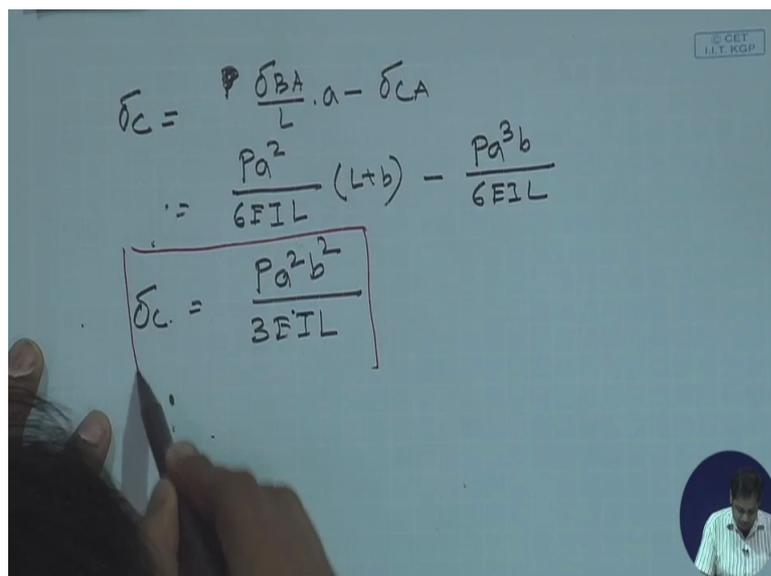 © CET
I.I.T. KGP
δc = δBA/L . a – δCA
= Pa²/6EIL (L+b) – Pa³b/6EIL
δc. = Pa²b²/3EIL